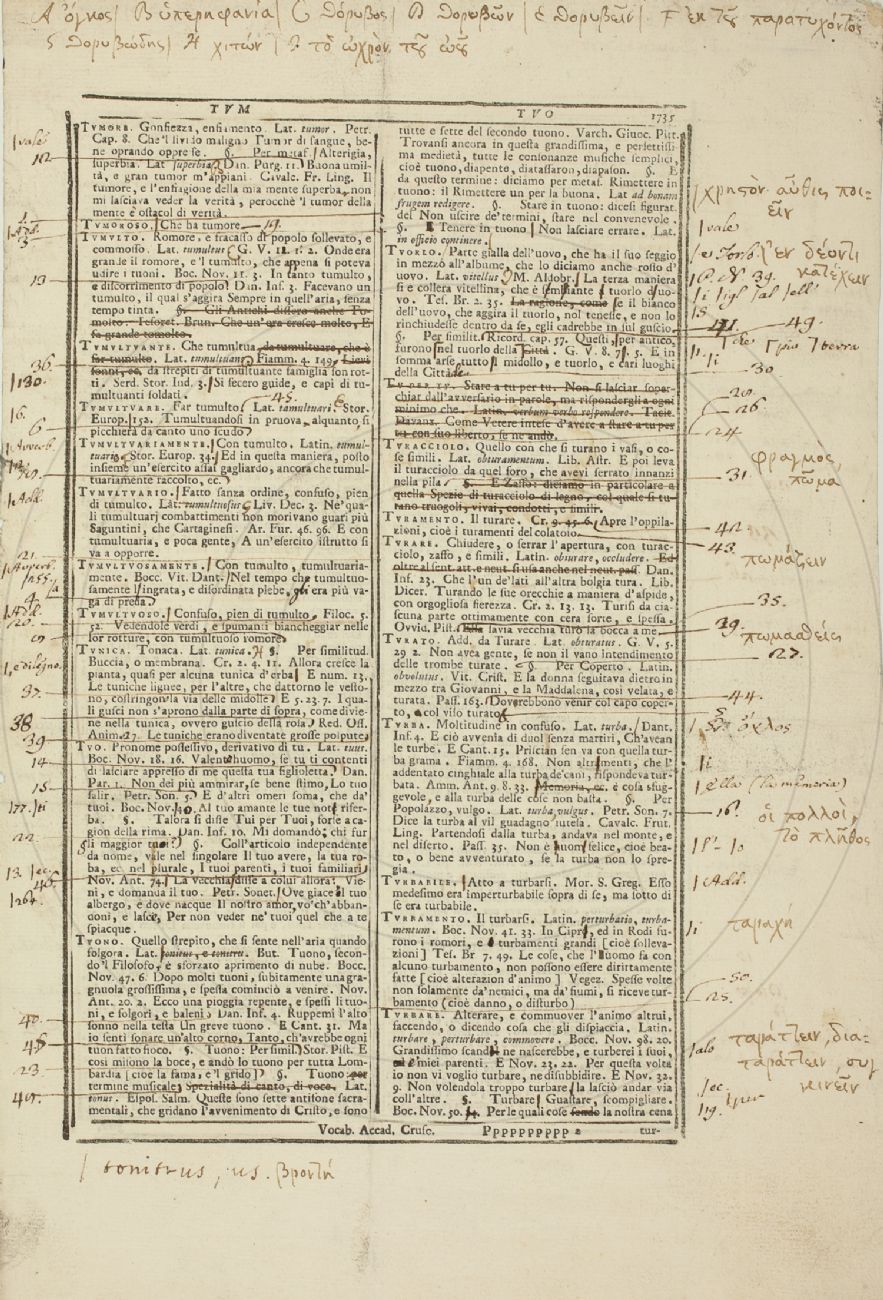 A ὄγκος | B ὑπερηφανία | C θόρυβος | D θορυβῶν | E θορυβεῖν | F ἐκ τοῦ παρατυχόντος
G θορυβώδης | H χιτών | I τὸ ὠχρὸν τοῦ ὠοῦ
TVM
TVO 1735
TVMORE. Gonfiezza, enfiamento. Lat. tumor. Petr.
Cap. 8. Che'l livido maligno Tumor di sangue, be-
ne oprando oppresse. §. Per metaf. Alterigia,
superbia. Lat superbia. Din. Purg. 11. Buona umil-
tà, e gran tumor m'appiani. Cavalc. Fr. Ling. Il
tumore, e l'enfiagione della mia mente superba, non
mi lasciava veder la verità, perocchè 'l tumor della
mente è ostacol di verità.
TVMOROSO. Che ha tumore
TVMVLTO. Romore, e fracasso di popolo sollevato, e
commosso. Lat. tumultus G. V. 11. 1. 2. Onde era
grande il romore, e 'l tumulto, che appena si poteva
udire i tuoni. Boc. Nov. 11. 3. In tanto tumulto,
e discorrimento di popolo. Din. Inf. 3. Facevano un
tumulto, il qual s'aggira Sempre in quell'aria, senza
tempo tinta. §. Gli Antichi dissero anche Tu-
molto. Tesoret. Brun. Che un'ora cresce molto, E
fa grande tomolto.
TVMVLTVANTE. Che tumultua, da tumultuare, che è
far tumulto. Lat. tumultuans Fiamm. 4. 149.
da strepiti di tumultuante famiglia son rot-
ti. Serd. Stor. Ind. 3. Si fecero guide, e capi di tu-
multuanti soldati.
TVMVLTVARE. Far tumulto Lat. tumultuari Stor.
Europ. 152. Tumultuandosi in pruova, alquanto si
picchierà da canto uno scudo
TVMVLTVARIAMENTE. Con tumulto. Latin. tumul-
tuario. Stor. Europ. 34. Ed in questa maniera, posto
insieme un'esercito assai gagliardo, ancora che tumul-
tuariamente raccolto, ec.
TVMVLTVARIO. Fatto sanza ordine, confuso, pien
di tumulto. Lat. tumultuosus Liv. Dec. 3. Ne'qua-
li tumultuarj combattimenti non morivano guari più
Saguntini, che Cartaginesi. Ar. Fur. 46. 96. E con
tumultuaria, e poca gente, A un'esercito istrutto si
va a opporre.
TVMVLTVOSAMENTE. Con tumulto, tumultuaria-
mente. Bocc. Vit. Dant. Nel tempo che tumultuo-
samente l'ingrata, e disordinata plebe, gli era più va-
ga di preda
TVMVLTVOSO. Confuso, pien di tumulto. Filoc. 5.
52. Vedendole verdi, e spumanti biancheggiar nelle
lor rotture, con tumultuoso romore
TVNICA. Tonaca. Lat. tunica. §. Per similitud.
Buccia, o membrana. Cr. 2. 4. 11. Allora cresce la
pianta, quasi per alcuna tunica d'erba. E num. 13.
Le tuniche lignee, per l'altre, che dattorno le vesto-
no, costringon la via delle midolle. E 5. 23. 7. I qua-
li gusci non s'aprono dalla parte di sopra, come divie-
ne nella tunica, ovvero gulcio della rosa. Red. Oss.
Anim. 27. Le tuniche erano diventate grosse polpute
TVO. Pronome possessivo, derivativo di tu. Lat. tuus.
Boc. Nov. 18. 16. Valentehuomo, se tu ti contenti
di lasciare appresso di me questa tua figlioletta. Dan.
Par. 1. Non dei più ammirar, se bene stimo, Lo tuo
salir. Petr. Son. 5. E d'altri omeri soma, che da'
tuoi. Boc. Nov. 40. Al tuo amante le tue notti riser-
ba. §. Talora si disse Tui per Tuoi, forse a ca-
gion della rima. Dan. Inf. 10. Mi domandò: chi fur
gli maggior tui? §. Coll'articolo independente
da nome, vale nel singolare Il tuo avere, la tua ro-
ba, ec. nel plurale, I tuoi parenti, i tuoi familiari
Nov. Ant. 74. La vecchia disse a colui allora: Vie-
ni, e domanda il tuo. Petr. Sonet. Ove giace il tuo
albergo, e dove nacque Il nostro amor, vo' ch'abban-
doni, e lasce, Per non veder ne' tuoi quel che a te
spiacque.
TVONO. Quello strepito, che si sente nell'aria quando
folgora. Lat. tonitus, e tonitru. But. Tuono, secon-
do 'l Filosofo, è sforzato aprimento di nube. Bocc.
Nov. 47. 6. Dopo molti tuoni, subitamente una gra-
gnuola grossissima, e spessa cominciò a venire. Nov.
Ant. 20. 2. Ecco una pioggia repente, e spessi li tuo-
ni, e folgori, e baleni. Dan. Inf. 4. Ruppemi l'alto
sonno nella testa Un greve tuono. E Cant. 31. Ma
io senti sonare un'alto corno, Tanto, ch'avrebbe ogni
tuon fatto fioco. §. Tuono: Per simil. Stor. Pist. E
così misono la boce, e andò lo tuono per tutta Lom-
bardia [cioè la fama, e 'l grido] §. Tuono: per
termine musicale. Spezialità di canto, di voce. Lat.
tonus. Espos. Salm. Queste sono sette antifone sacra-
mentali, che gridano l'avvenimento di Cristo, e sono
tutte e sette del secondo tuono. Varch. Giuoc. Pitt.
Trovansi ancora in questa grandissima, e perfettissi-
ma medietà, tutte le consonanze musiche semplici,
cioè tuono, diapente, diatassaron, diapason. §. E
da questo termine: diciamo per metaf. Rimettere in
tuono: il Rimettere un per la buona. Lat ad bonam
frugem redigere. §. Stare in tuono: dicesi figurat.
del Non uscire de' termini, stare nel convenevole.
§. Tenere in tuono Non lasciare errare. Lat.
in officio continere.
TVORLO. Parte gialla dell'uovo, che ha il suo seggio
in mezzo all'albume, che lo diciamo anche rosso d'
uovo. Lat. vitellus M. Aldobr. La terza maniera
si è collera vitellina, che è sembiante tuorlo d'uo-
vo. Tes. Br. 2. 35. La ragione, come se il bianco
dell'uovo, che aggira il tuorlo, nol tenesse, e non lo
rinchiudesse dentro da se, egli cadrebbe in sul guscio.
§. Per similit. Ricord. cap. 57. Questi per antico,
furono nel tuorlo della Città. G. V. 8. 7. 5. E in
somma arse tutto il midollo, e tuorlo, e cari luoghi
della Città
TV PER TV. Stare a tu per tu. Non si lasciar soper-
chiar dall'avversario in parole, ma rispondergli a ogni
minimo che. Latin. verbum verbo respondere. Tacit.
Davanz. Come Vetere intese d'avere a stare a tu per
tu con suo liberto, se ne andò.
TVRACCIOLO. Quello con che si turano i vasi, o co-
se simili. Lat. obturamentum. Lib. Astr. E poi leva
il turacciolo da quel foro, che avevi serrato innanzi
nella pila. §. E Zaffo: diciamo in particolare a
quella Spezie di turacciolo di legno, col quale si tu-
rano truogoli, vivai, condotti, e simili.
TVRAMENTO. Il turare. Cr. 9. 45. 6. Apre l'oppila-
zioni, cioè i turamenti del colatoio
TVRARE. Chiudere, o serrar l'apertura, con turac-
ciolo, zaffo, e simili. Latin. obturare, occludere. Ed
oltre al sent. att. e neut. si usa anche nel neut. pass. Dan.
Inf. 23. Che l'un de' lati all'altra bolgia tura. Lib.
Dicer. Turando le sue orecchie a maniera d'aspide,
con orgogliosa fierezza. Cr. 2. 13. 13. Turisi da cia-
scuna parte ottimamente con cera forte, e spessa.
Ovvid. Pist. savia vecchia turò la bocca a me
TVRATO. Add. da Turare. Lat. obturatus. G. V. 5.
29 2. Non avea gente, se non il vano intendimento
delle trombe turate. §. Per Coperto. Latin.
obvolutus. Vit. Crist. E la donna seguitava dietro in
mezzo tra Giovanni, e la Maddalena, così velata, e
turata. Pass. 163. Dovrebbono venir col capo coper-
to, e col viso turato
TVRBA. Moltitudine in confuso. Lat. turba. Dant.
Inf. 4. E ciò avvenia di duol senza martiri, Ch'avean
le turbe. E Cant. 15. Priscian sen va con quella tur-
ba grama. Fiamm. 4. 168. Non altrimenti, che l'
addentato cinghiale alla turba de' cani, rispondeva tur-
bata. Amm. Ant. 9. 8. 33. Memoria, ec. è cosa sfug-
gevole, e alla turba delle cose non basta. §. Per
Popolazzo, vulgo. Lat. turba, vulgus. Petr. Son. 7.
Dice la turba al vil guadagno intesa. Cavalc. Frut.
Ling. Partendosi dalla turba, andava nel monte, e
nel diserto. Pass. 35. Non è huom felice, cioè bea-
to, o bene avventurato, se la turba non lo spre-
gia.
TVRBABILE. Atto a turbarsi. Mor. S. Greg. Esso
medesimo era imperturbabile sopra di se, ma sotto di
se era turbabile.
TVRBAMENTO. Il turbarsi. Latin. perturbatio, turba-
mentum. Boc. Nov. 41. 33. In Cipri, ed in Rodi fu-
rono i romori, e turbamenti grandi [cioè solleva-
zioni] Tes. Br 7. 49. Le cose, che l'huomo fa con
alcuno turbamento, non possono essere dirittamente
fatte [cioè alterazion d'animo] Vegez. Spesse volte
non solamente da' nemici, ma da' fiumi, si riceve tur-
bamento (cioè danno, o disturbo)
TVRBARE. Alterare, e commuover l'animo altrui,
faccendo, o dicendo cosa che gli dispiaccia. Latin.
turbare, perturbare, commovere. Bocc. Nov. 98. 20.
Grandissimo scandal ne nascerebbe, e turberei i suoi,
e miei parenti. E Nov. 23. 22. Per questa volta
io non vi voglio turbare, ne disubbidire. E Nov. 32.
9. Non volendola troppo turbare, la lasciò andar via
coll'altre. §. Turbare: Guastare, scompigliare.
Boc. Nov. 50. 14. Per le quali cose la nostra cena
Vocab. Accad. Crusc. Ppppppppp 2 tur-
χρησὸν αὖθις ποι-
εῖν
vale
ἐν δέοντι
κατέχειν
φραγμὸς,
πῶμα
πωμάζειν
πωμασθείς
ὄχλος
ella (la memoria)
οἱ πολλοὶ,
τὸ πλῆθος
Add.
ταραχή
ταράττειν, δια-
ταράττειν, συγ
κινεῖν
tonitrus, us. βροντή